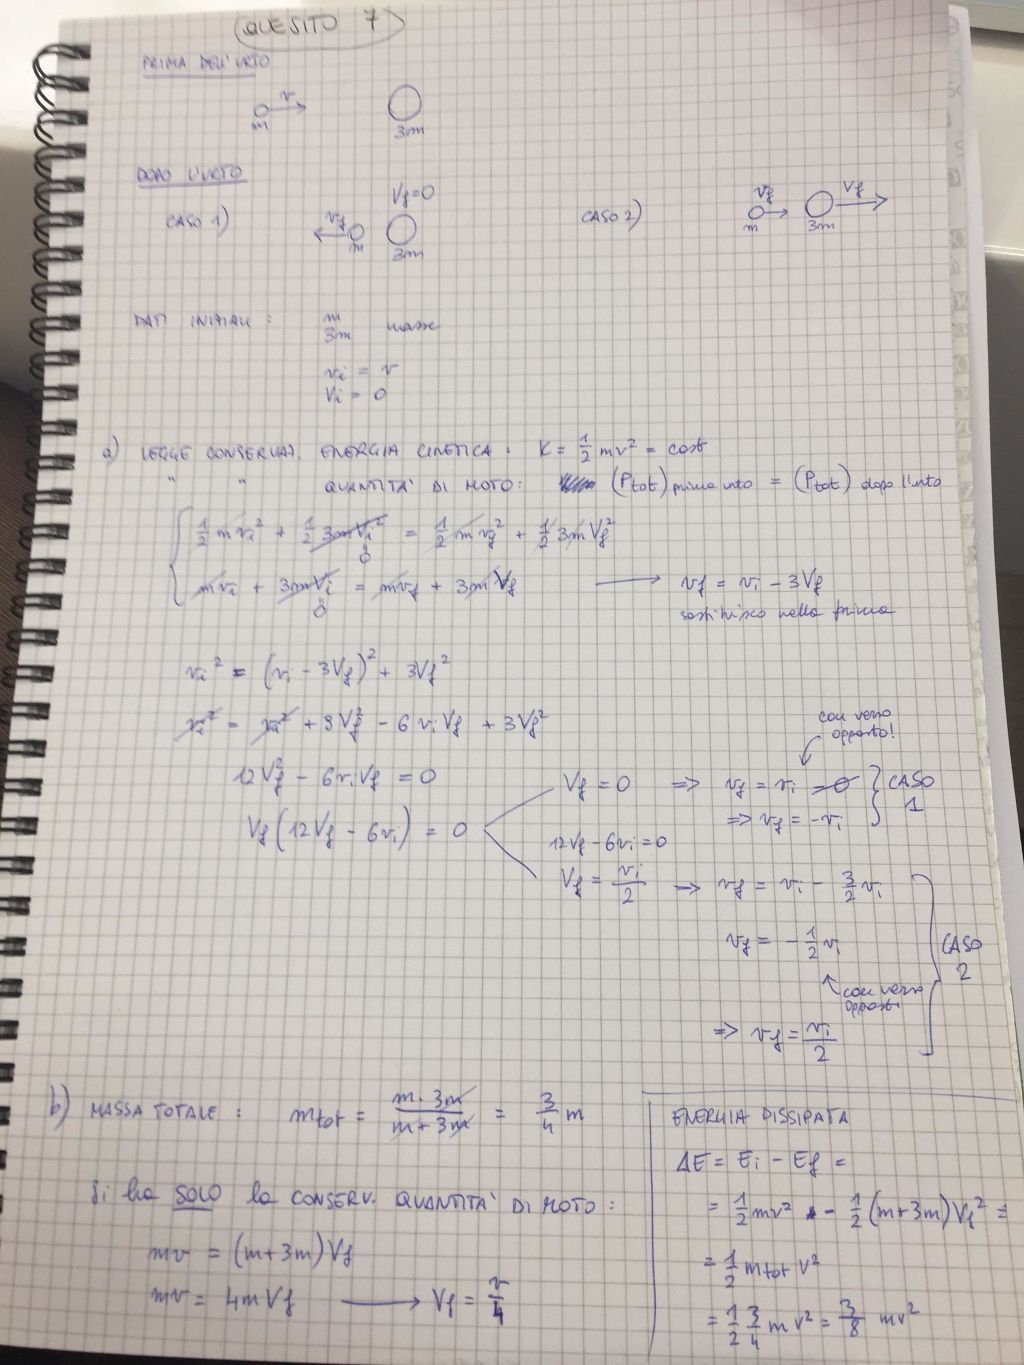 QUESITO 7
PRIMA DELL'URTO
v
m
3m
DOPO L'URTO
CASO 1)
vf
m
Vf=0
3m
CASO 2)
vf
m
Vf
3m
DATI INIZIALI : m
3m masse
vi = v
Vi = 0
a) LEGGE CONSERVAZ. ENERGIA CINETICA : K = 1/2 mv² = cost
" " QUANTITA' DI MOTO: (Ptot) prima urto = (Ptot) dopo l'urto
1/2 m vi² + 1/2 3m Vi² = 1/2 m vf² + 1/2 3m Vf²
0
mvi + 3mVi = mvf + 3mVf → vf = vi - 3Vf
0
sostituisco nella prima
vi² = (vi - 3Vf)² + 3Vf²
vi² = vi² + 9Vf² - 6viVf + 3Vf²
con verso
opposto!
12Vf² - 6viVf = 0
Vf (12Vf - 6vi) = 0
Vf = 0 => vf = vi - 0
=> vf = -vi
CASO
1
12Vf - 6vi = 0
Vf = vi/2 → vf = vi - 3/2 vi
vf = - 1/2 vi
con verso
opposto
=> vf = vi/2
CASO
2
b) MASSA TOTALE : mtot = m · 3m / m + 3m = 3/4 m
Si ha SOLO la CONSERV. QUANTITA' DI MOTO :
mv = (m+3m)Vf
mv = 4mVf → Vf = v/4
ENERGIA DISSIPATA
ΔE = Ei - Ef =
= 1/2 mv² - 1/2 (m+3m)Vf² =
= 1/2 mtot v²
= 1/2 3/4 m v² = 3/8 mv²